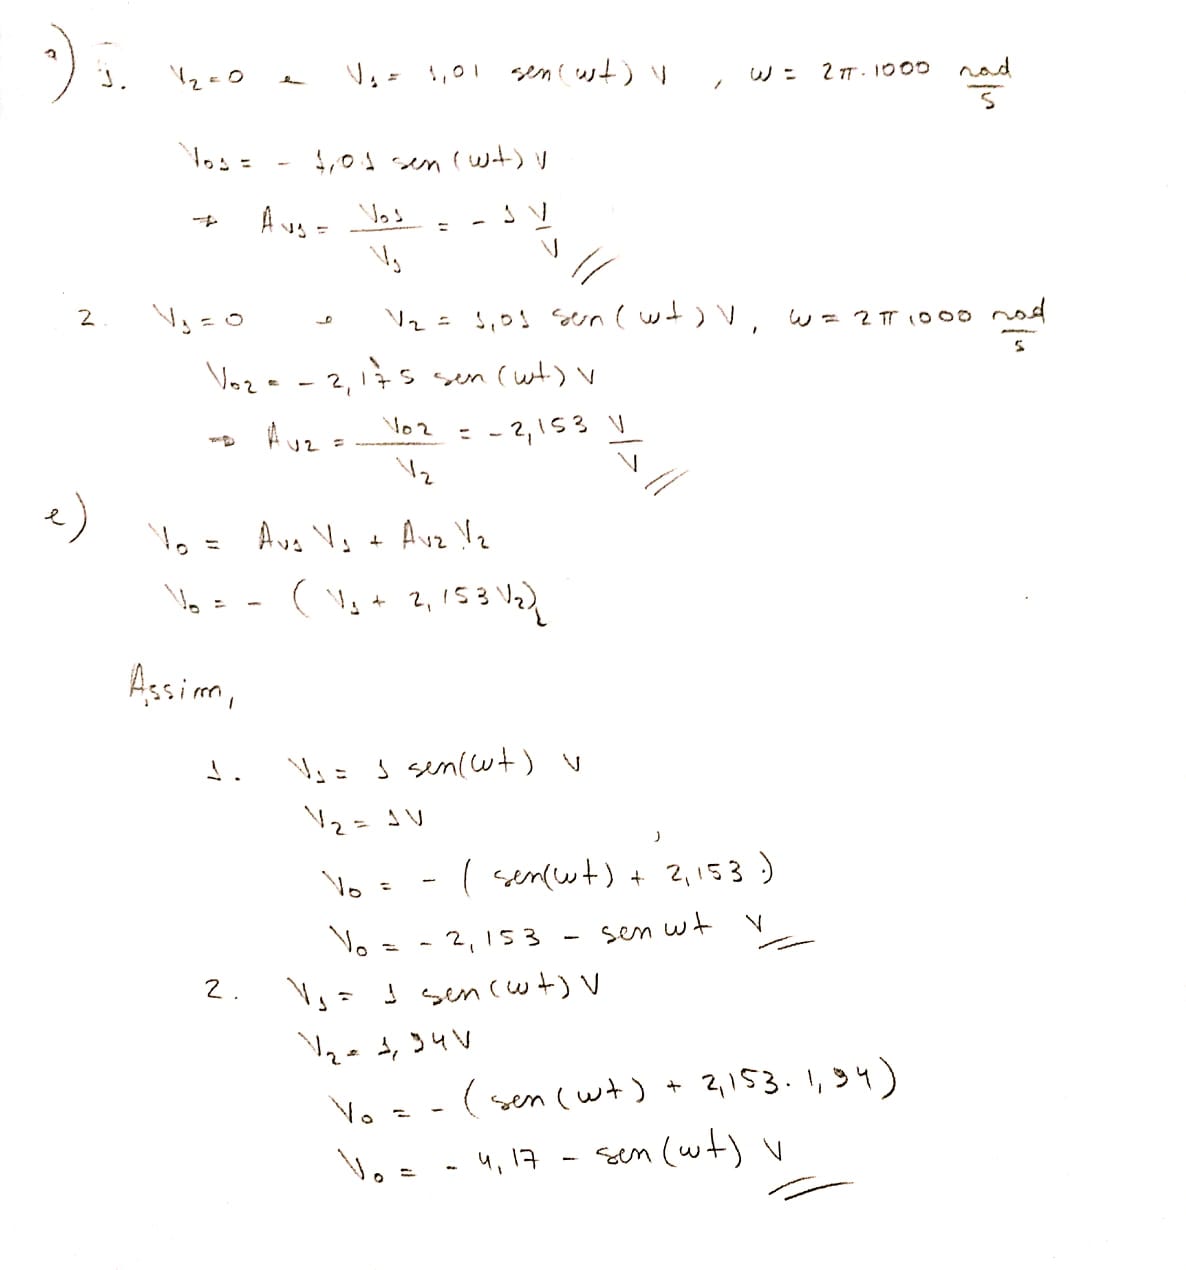 a) 1. V2 = 0 e V1 = 1,01 sen(wt) V , w = 2π.1000 rad/s
Vo1 = - 1,01 sen(wt) V
⇒ Av1 = Vo1/V1 = - 1 V/V //
2. V1 = 0 e V2 = 1,01 sen(wt) V, w = 2π1000 rad/s
Vo2 = - 2,175 sen(wt) V
⇒ Av2 = Vo2/V2 = - 2,153 V/V //
e) Vo = Av1 V1 + Av2 V2
Vo = - ( V1 + 2,153 V2)
Assim,
1. V1 = 1 sen(wt) V
V2 = 1V
Vo = - ( sen(wt) + 2,153 )
Vo = - 2,153 - sen wt V
2. V1 = 1 sen(wt) V
V2 = 1,94V
Vo = - ( sen(wt) + 2,153. 1,94)
Vo = - 4,17 - sen(wt) V